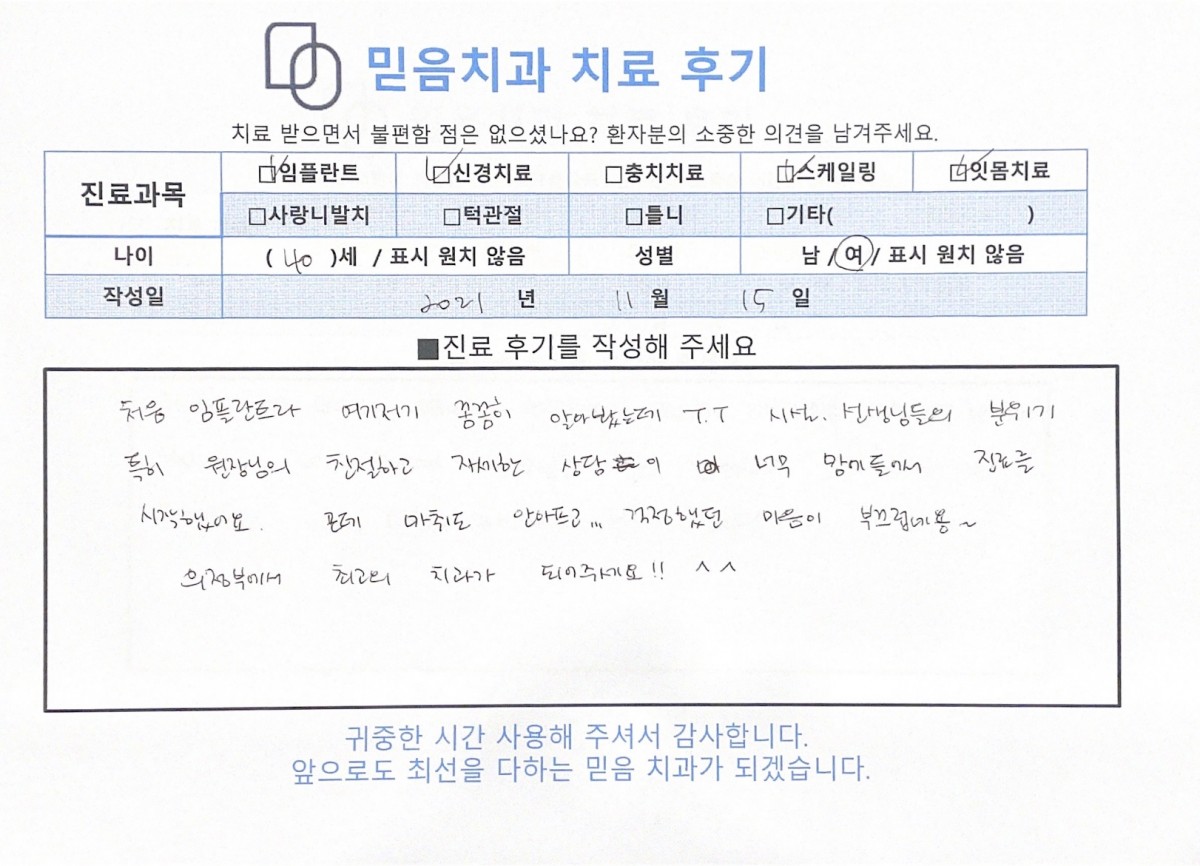 믿음치과 치료 후기
치료 받으면서 불편함 점은 없으셨나요? 환자분의 소중한 의견을 남겨주세요.
진료과목 ☑임플란트 ☑신경치료 □충치치료 ☑스케일링 ☑잇몸치료
□사랑니발치 □턱관절 □틀니 □기타( )
나이 ( 40 )세 / 표시 원치 않음 성별 남 / 여 / 표시 원치 않음
작성일 2021 년 11 월 15 일
■진료 후기를 작성해 주세요
처음 임플란트라 여기저기 꼼꼼히 알아봤는데 T.T 시설. 선생님들의 분위기
특히 원장님의 친절하고 자세한 상담이 너무 맘에들어서 진료를
시작했어요. 근데 마취도 안아프고,,, 걱정했던 마음이 부끄럽네용~
의정부에서 최고의 치과가 되어주세요!! ^^
귀중한 시간 사용해 주셔서 감사합니다.
앞으로도 최선을 다하는 믿음 치과가 되겠습니다.